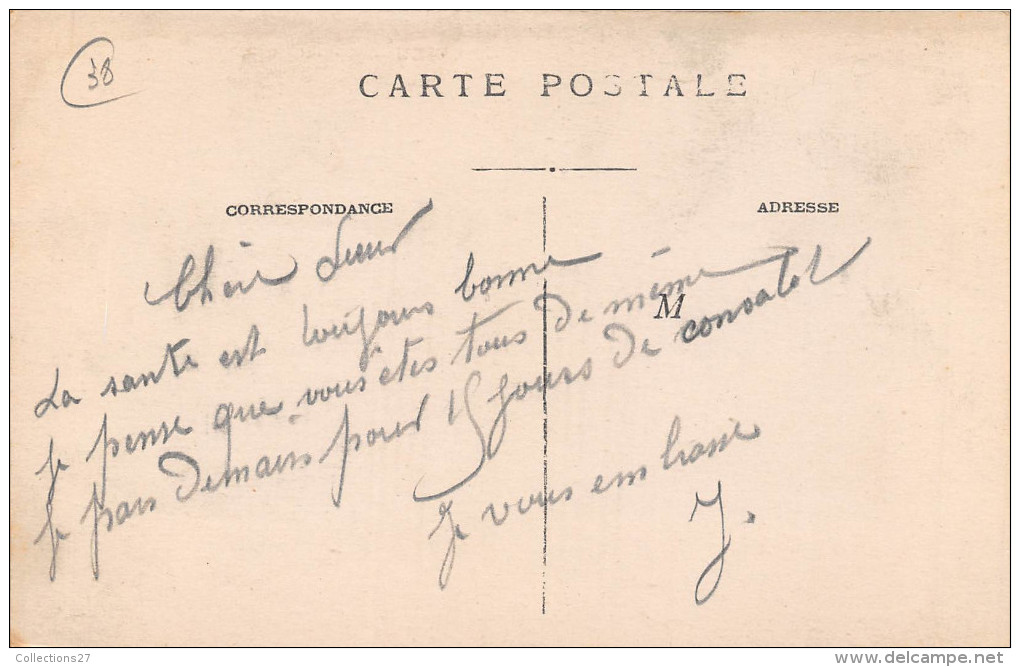 38
CARTE POSTALE
CORRESPONDANCE
ADRESSE
M
Chère Sœur
La santé est toujours bonne
je pense que vous êtes tous de même
je pars demain pour 15 jours de convalet
je vous embrasse
J.
Collections27
www.delcampe.net